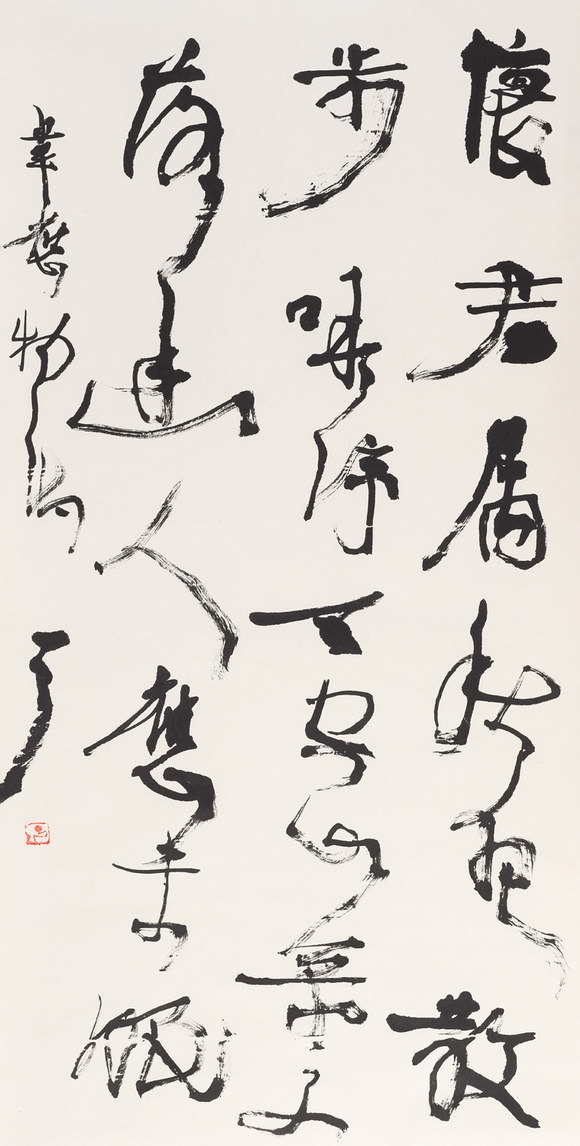 懷君属秋夜散
步咏凉天空山松子
落幽人應未眠
韋應物